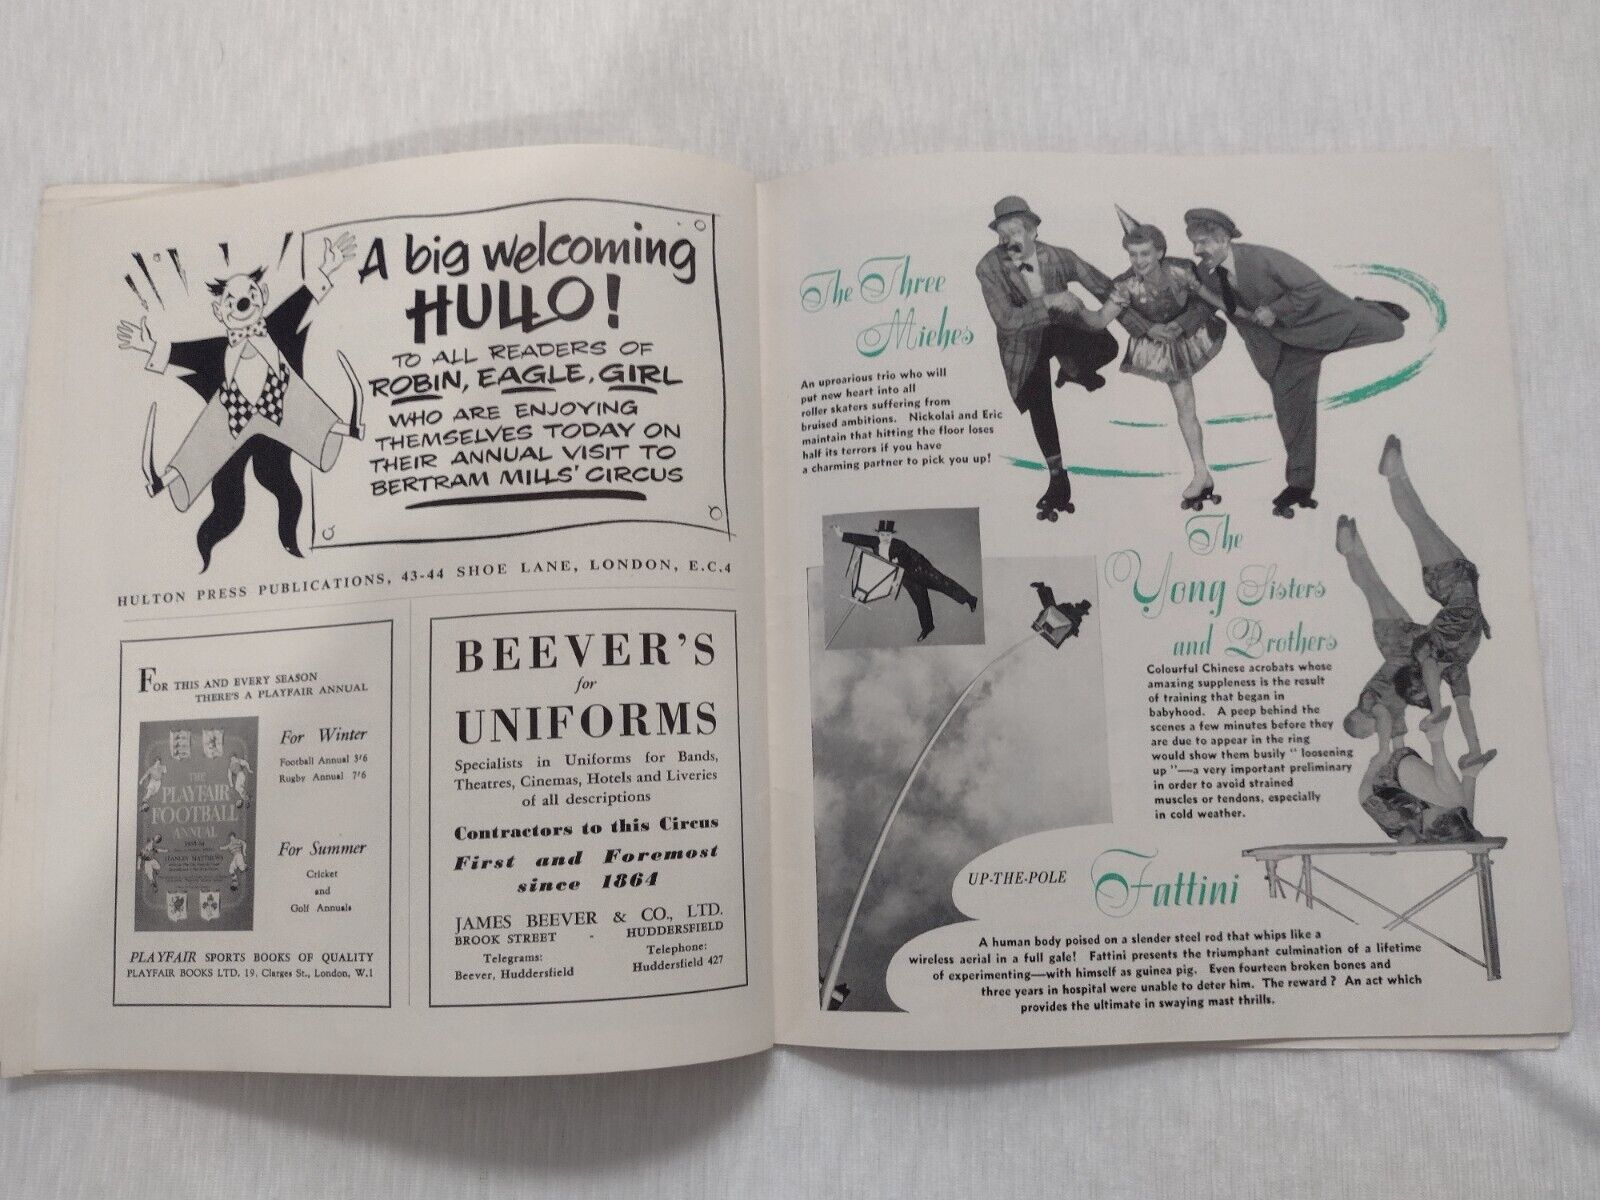 A big welcoming
HULLO!
TO ALL READERS OF
ROBIN, EAGLE, GIRL
WHO ARE ENJOYING
THEMSELVES TODAY ON
THEIR ANNUAL VISIT TO
BERTRAM MILLS' CIRCUS
HULTON PRESS PUBLICATIONS, 43-44 SHOE LANE, LONDON, E.C.4
FOR THIS AND EVERY SEASON
THERE'S A PLAYFAIR ANNUAL
THE
PLAYFAIR
FOOTBALL
ANNUAL
STANLEY MATTHEWS
For Winter
Football Annual 3'6
Rugby Annual 7'6
For Summer
Cricket
and
Golf Annuals
PLAYFAIR SPORTS BOOKS OF QUALITY
PLAYFAIR BOOKS LTD, 19, Clarges St., London, W.1
BEEVER'S
for
UNIFORMS
Specialists in Uniforms for Bands,
Theatres, Cinemas, Hotels and Liveries
of all descriptions
Contractors to this Circus
First and Foremost
since 1864
JAMES BEEVER & CO., LTD.
BROOK STREET - HUDDERSFIELD
Telegrams:
Beever, Huddersfield
Telephone:
Huddersfield 427
The Three
Miehes
An uproarious trio who will
put new heart into all
roller skaters suffering from
bruised ambitions. Nickolai and Eric
maintain that hitting the floor loses
half its terrors if you have
a charming partner to pick you up!
The
Yong Sisters
and Brothers
Colourful Chinese acrobats whose
amazing suppleness is the result
of training that began in
babyhood. A peep behind the
scenes a few minutes before they
are due to appear in the ring
would show them busily "loosening
up"—a very important preliminary
in order to avoid strained
muscles or tendons, especially
in cold weather.
UP-THE-POLE
Fattini
A human body poised on a slender steel rod that whips like a
wireless aerial in a full gale! Fattini presents the triumphant culmination of a lifetime
of experimenting—with himself as guinea pig. Even fourteen broken bones and
three years in hospital were unable to deter him. The reward? An act which
provides the ultimate in swaying mast thrills.